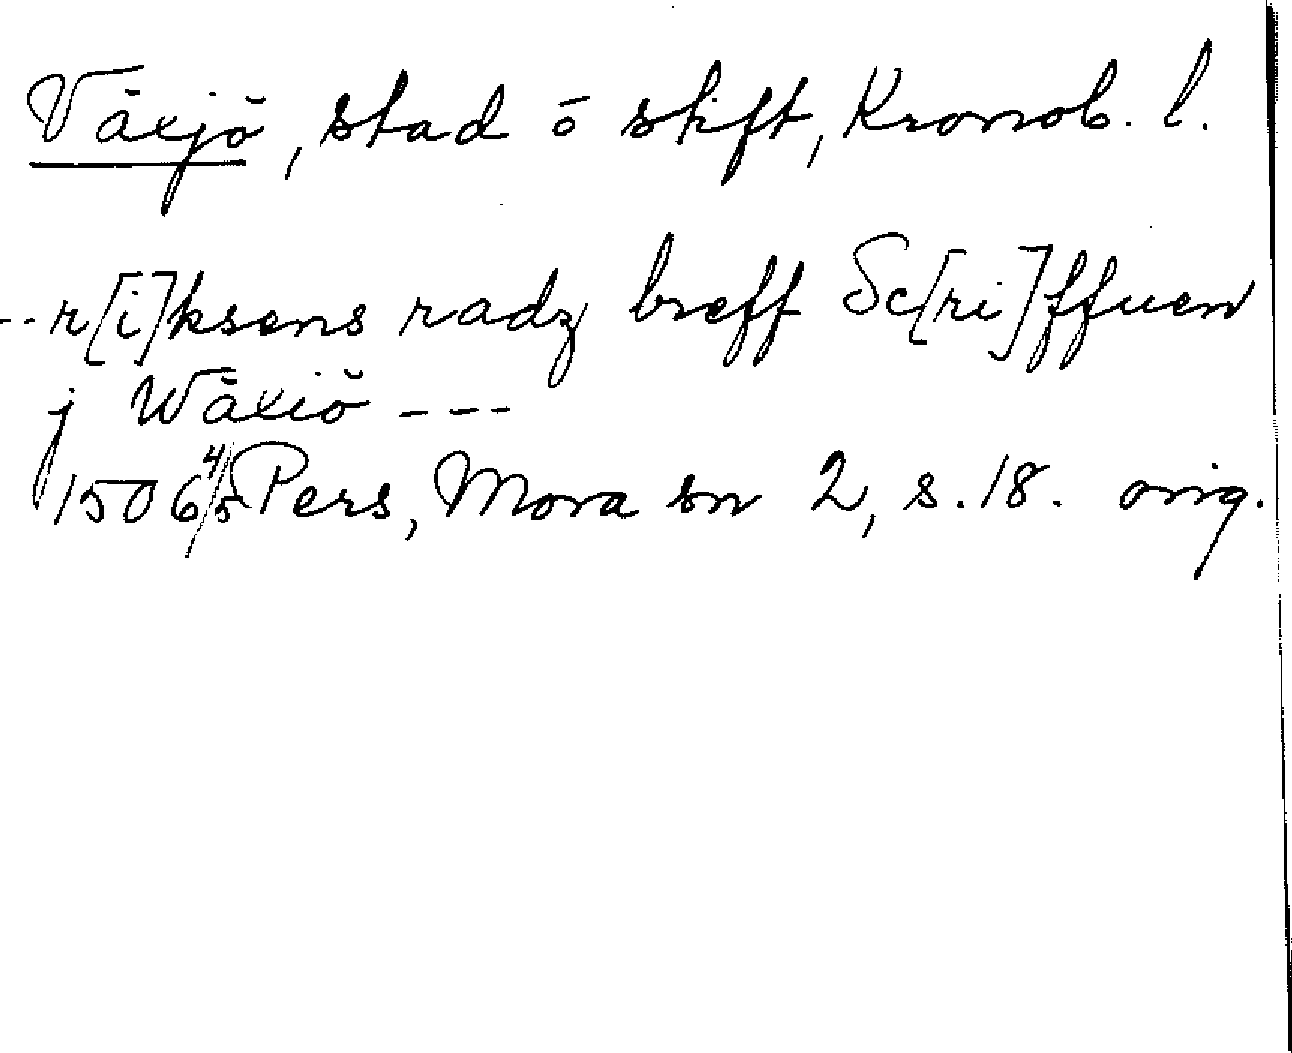 Växjö, stad ö stift, Kronob. l.
--r[i]ksens radz breff Sc[ri]ffuen
j Wäxiö ---
1506 4/5 Pers, Mora sn 2, s. 18. orig.